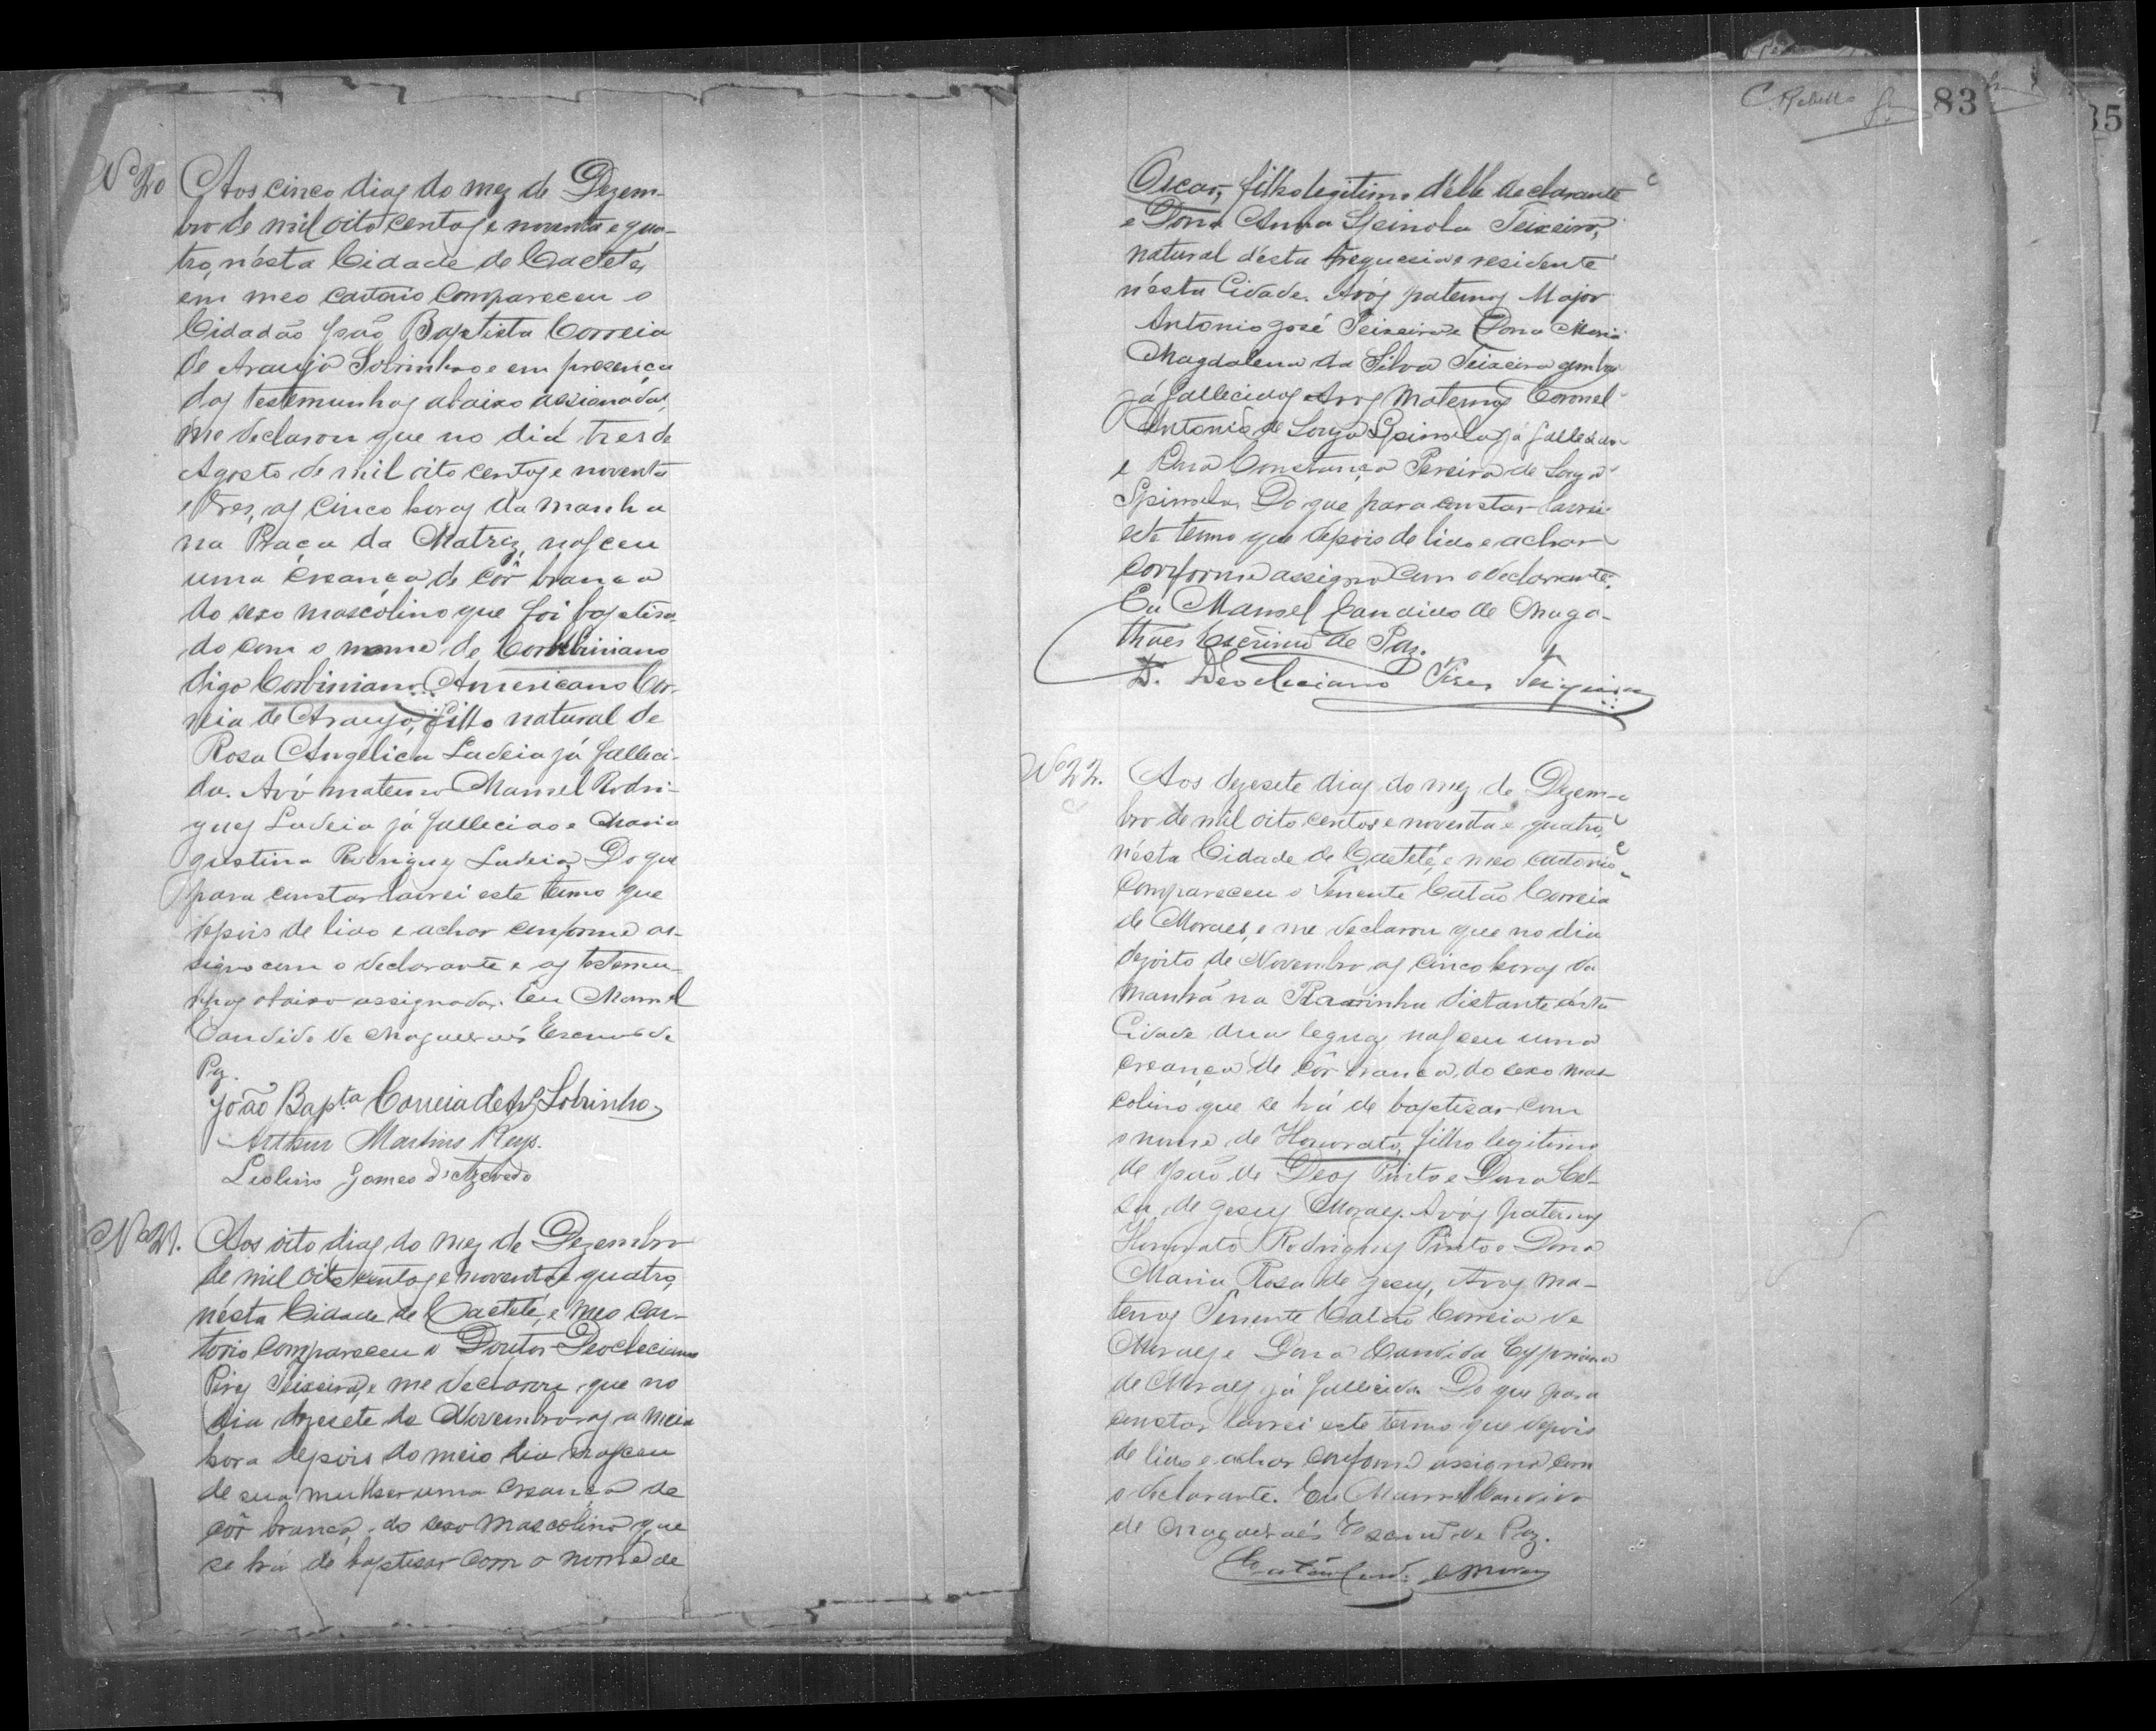 Nº 20 Aos cinco dias do mez de Dezem-
bro de mil oito centos e noventa e qua-
tro, n'ésta Cidade de Caeteté,
em meo cartorio compareceu o
Cidadão João Baptista Correia
de Araujo Sobrinho e em presença
das testemunhas abaixo assignadas,
me declarou que no dia tres de
Agosto de mil oito centos e noventa
e tres, as cinco horas da manhã
na Praça da Matriz, nasceu
uma creança de côr branca
do sexo mascolino que foi baptisa-
do com o nome de
digo Corbiniano Americano Cor-
reia de Araujo, filho natural de
Rosa Angelica Ladeia já falleci-
da. Avô materno Manoel Rodri-
gues Ladeia já fallecido e Maria
Rodrigues Ladeia. Do que
para constar lavrei este termo que
depois de lido e achar conforme as-
signo com o declarante e as testemu-
nhas abaixo assignadas. Eu Manoel
Candido de Magalhaes Escrivão de
Paz.
João Bapta Correia de Ar. Sobrinho
Arthur Martins Reys.
Liolino Gomes d'Azevedo
Nº 21. Aos oito dias do mez de Dezembro
de mil oito centos e noventa e quatro,
n'ésta Cidade de Caeteté, e meo car-
torio compareceu o Doutor Deocleciano
Pires Teixeira, e me declarou, que no
dia dezesete de Novembro as a meia
hora depois do meio dia nasceu
de sua mulher uma creança de
côr branca, do sexo mascolino que
se há de baptisar com o nome de
C. Rebello 83
85
Oscar, filho legitimo d'elle declarante
e Dona Anna Spinola Teixeira,
natural d'ésta freguesia e residente
n'ésta Cidade. Avós paternos Major
Antonio José Teixeira e Dona Maria
Magdalena da Silva Teixeira ambos
já fallecidos Avos maternos Coronel
Antonio de Souza Spinola já fallecido
e Dona Constança Pereira de Souza
Spinola. Do que para constar lavrei
este termo que depois de lido e achar
conforme assigno com o declarante.
Eu Manoel Candido de Maga-
lhães Escrivão de Paz.
Dr. Deocleciano Pires Teixeira
Nº 22. Aos dezesete dias do mez de Dezem-
bro de mil oito centos e noventa e quatro,
n'ésta Cidade de Caeteté, e meo cartorio
compareceu o Tenente Catão Correia
de Moraes, e me declarou que no dia
dezoito de Novembro as cinco horas da
manhã na distante d'ésta
Cidade duas legoas nasceu uma
creança de côr branca, do sexo mas-
colino que se há de baptisar com
o nome de Honorato, filho legitimo
de João de Deos Pinto e Dona Cel-
sa de Jesus Moraes. Avós paternos
Honorato Rodrigues Pinto e Dona
Maria Rosa de Jesus, Avos ma-
ternos Tenente Catão Correia de
Moraes e Dona Candida Cypriana
de Moraes já fallecida. Do que para
constar lavrei este termo que depois
de lido e achar conforme assigno com
o declarante. Eu Manoel Candido
de Magalhaes Escrivão de Paz.